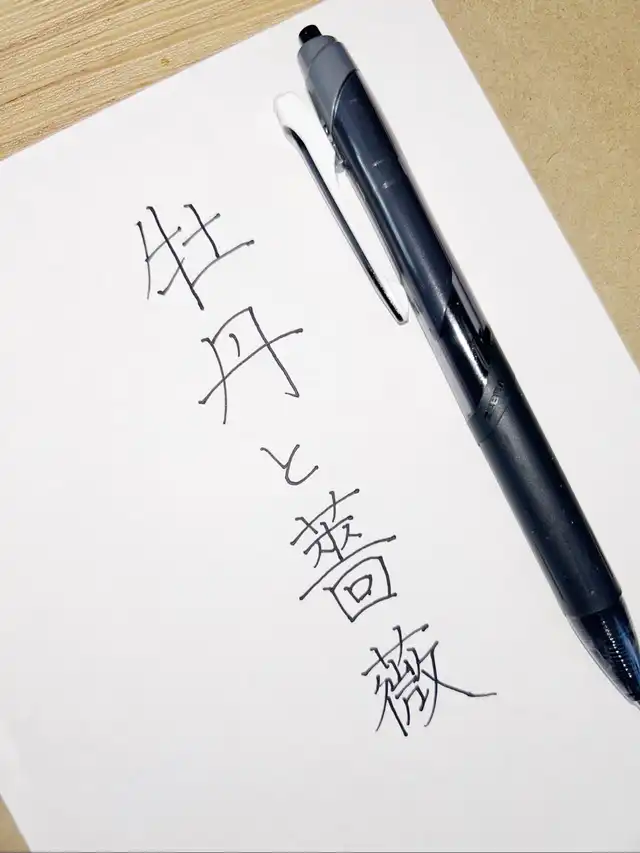 牡丹と薔薇